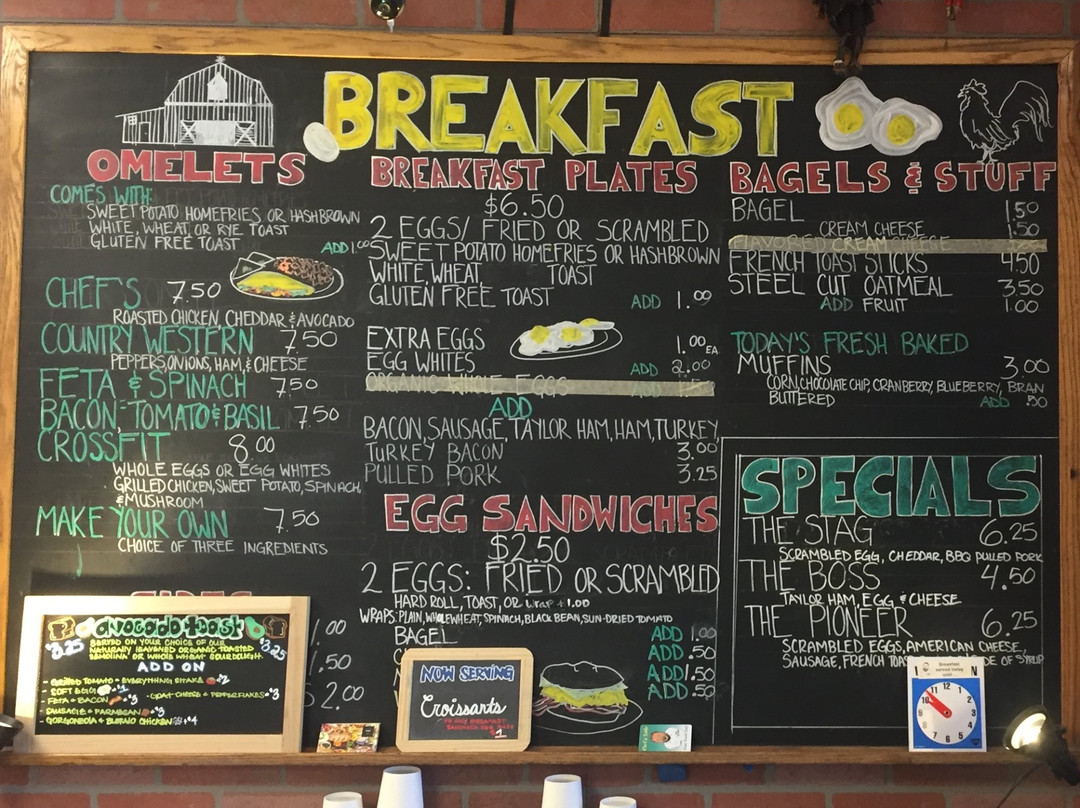 BREAKFAST
OMELETS
COMES WITH:
SWEET POTATO HOMEFRIES OR HASHBROWN
WHITE, WHEAT, OR RYE TOAST
GLUTEN FREE TOAST ADD 1.00
CHEF'S 7.50
ROASTED CHICKEN, CHEDDAR & AVOCADO
COUNTRY WESTERN 7.50
PEPPERS, ONIONS, HAM, & CHEESE
FETA & SPINACH 7.50
BACON, TOMATO & BASIL 7.50
CROSSFIT 8.00
WHOLE EGGS OR EGG WHITES
GRILLED CHICKEN, SWEET POTATO, SPINACH,
& MUSHROOM
MAKE YOUR OWN 7.50
CHOICE OF THREE INGREDIENTS
SIDES
1.00
1.50
2.00
avocado toast
$3.25 SERVED ON YOUR CHOICE OF OUR $3.25
NATURALLY LEAVENED ORGANIC TOASTED
SEMOLINA OR WHOLE WHEAT SOURDOUGH.
ADD ON
- GRILLED TOMATO + EVERYTHING $2
- SOFT EGG $1
- GOAT CHEESE & PEPPER FLAKES $3
- FETA & BACON $3
- SAUSAGE & PARMESAN $3
- GORGONZOLA & BUFFALO CHICKEN $4
BREAKFAST PLATES
$6.50
2 EGGS/ FRIED OR SCRAMBLED
SWEET POTATO HOMEFRIES OR HASHBROWN
WHITE, WHEAT, TOAST
GLUTEN FREE TOAST ADD 1.00
EXTRA EGGS 1.00 EA
EGG WHITES ADD 2.00
ORGANIC WHOLE EGGS
ADD
BACON, SAUSAGE, TAYLOR HAM, HAM, TURKEY
TURKEY BACON 3.00
PULLED PORK 3.25
EGG SANDWICHES
$2.50
2 EGGS: FRIED OR SCRAMBLED
HARD ROLL, TOAST, OR wrap + 1.00
WRAPS: PLAIN, WHOLE WHEAT, SPINACH, BLACK BEAN, SUN-DRIED TOMATO
BAGEL ADD 1.00
ADD .50
ADD 1.50
ADD .50
NOW SERVING
Croissants
$1
BAGELS & STUFF
BAGEL 1.50
CREAM CHEESE 1.50
FLAVORED CREAM CHEESE
FRENCH TOAST STICKS 4.50
STEEL CUT OATMEAL 3.50
ADD FRUIT 1.00
TODAY'S FRESH BAKED
MUFFINS 3.00
CORN, CHOCOLATE CHIP, CRANBERRY, BLUEBERRY, BRAN
BUTTERED ADD .50
SPECIALS
THE STAG 6.25
SCRAMBLED EGG, CHEDDAR, BBQ PULLED PORK
THE BOSS 4.50
TAYLOR HAM, EGG & CHEESE
THE PIONEER 6.25
SCRAMBLED EGGS, AMERICAN CHEESE,
SAUSAGE, FRENCH TOAST DE OF SYRUP
Breakfast
served today
until
12 1 2 3 4 5 6 7 8 9 10 11